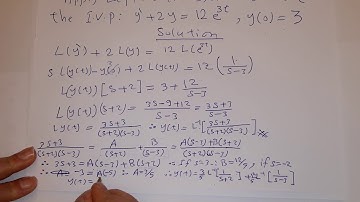 the I.V.P: y' + 2y = 12 e^{3t}, y(0) = 3
Solution
L(y') + 2 L(y) = 12 L(e^{3t})
s L(y(t)) - y(0) + 2 L(y(t)) = 12 (1/(s-3))
L(y(t)) [s+2] = 3 + 12/(s-3)
L(y(t)) (s+2) = (3s-9+12)/(s-3) = (3s+3)/(s-3)
L y(t) = (3s+3)/((s+2)(s-3)) ∴ y(t) = L^{-1} [(3s+3)/((s+2)(s-3))]
(3s+3)/((s+2)(s-3)) = A/(s+2) + B/(s-3) = (A(s-3)+B(s+2))/((s+2)(s-3))
∴ 3s+3 = A(s-3) + B(s+2) ∴ If s=3 ∴ B=12/5, if s=-2
∴ -3 = A(-5) ∴ A=3/5 ∴ y(t) = 3/5 L^{-1}[1/(s+2)] + 12/5 L^{-1}[1/(s-3)]
y(t) =